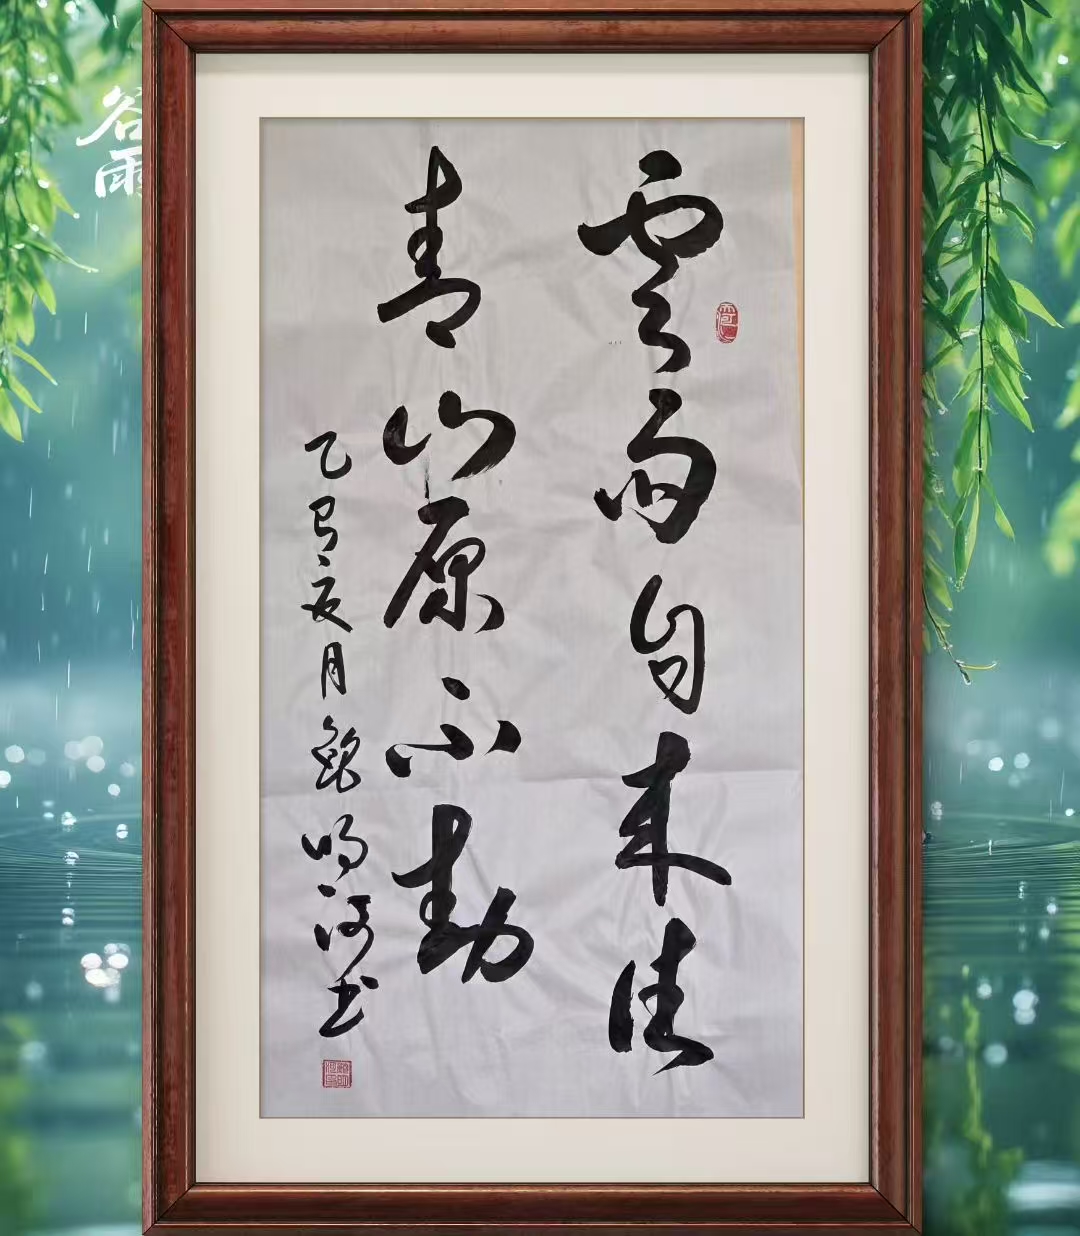 谷雨
雲雨自来往
青山原不動
乙巳夏月鮑明河书